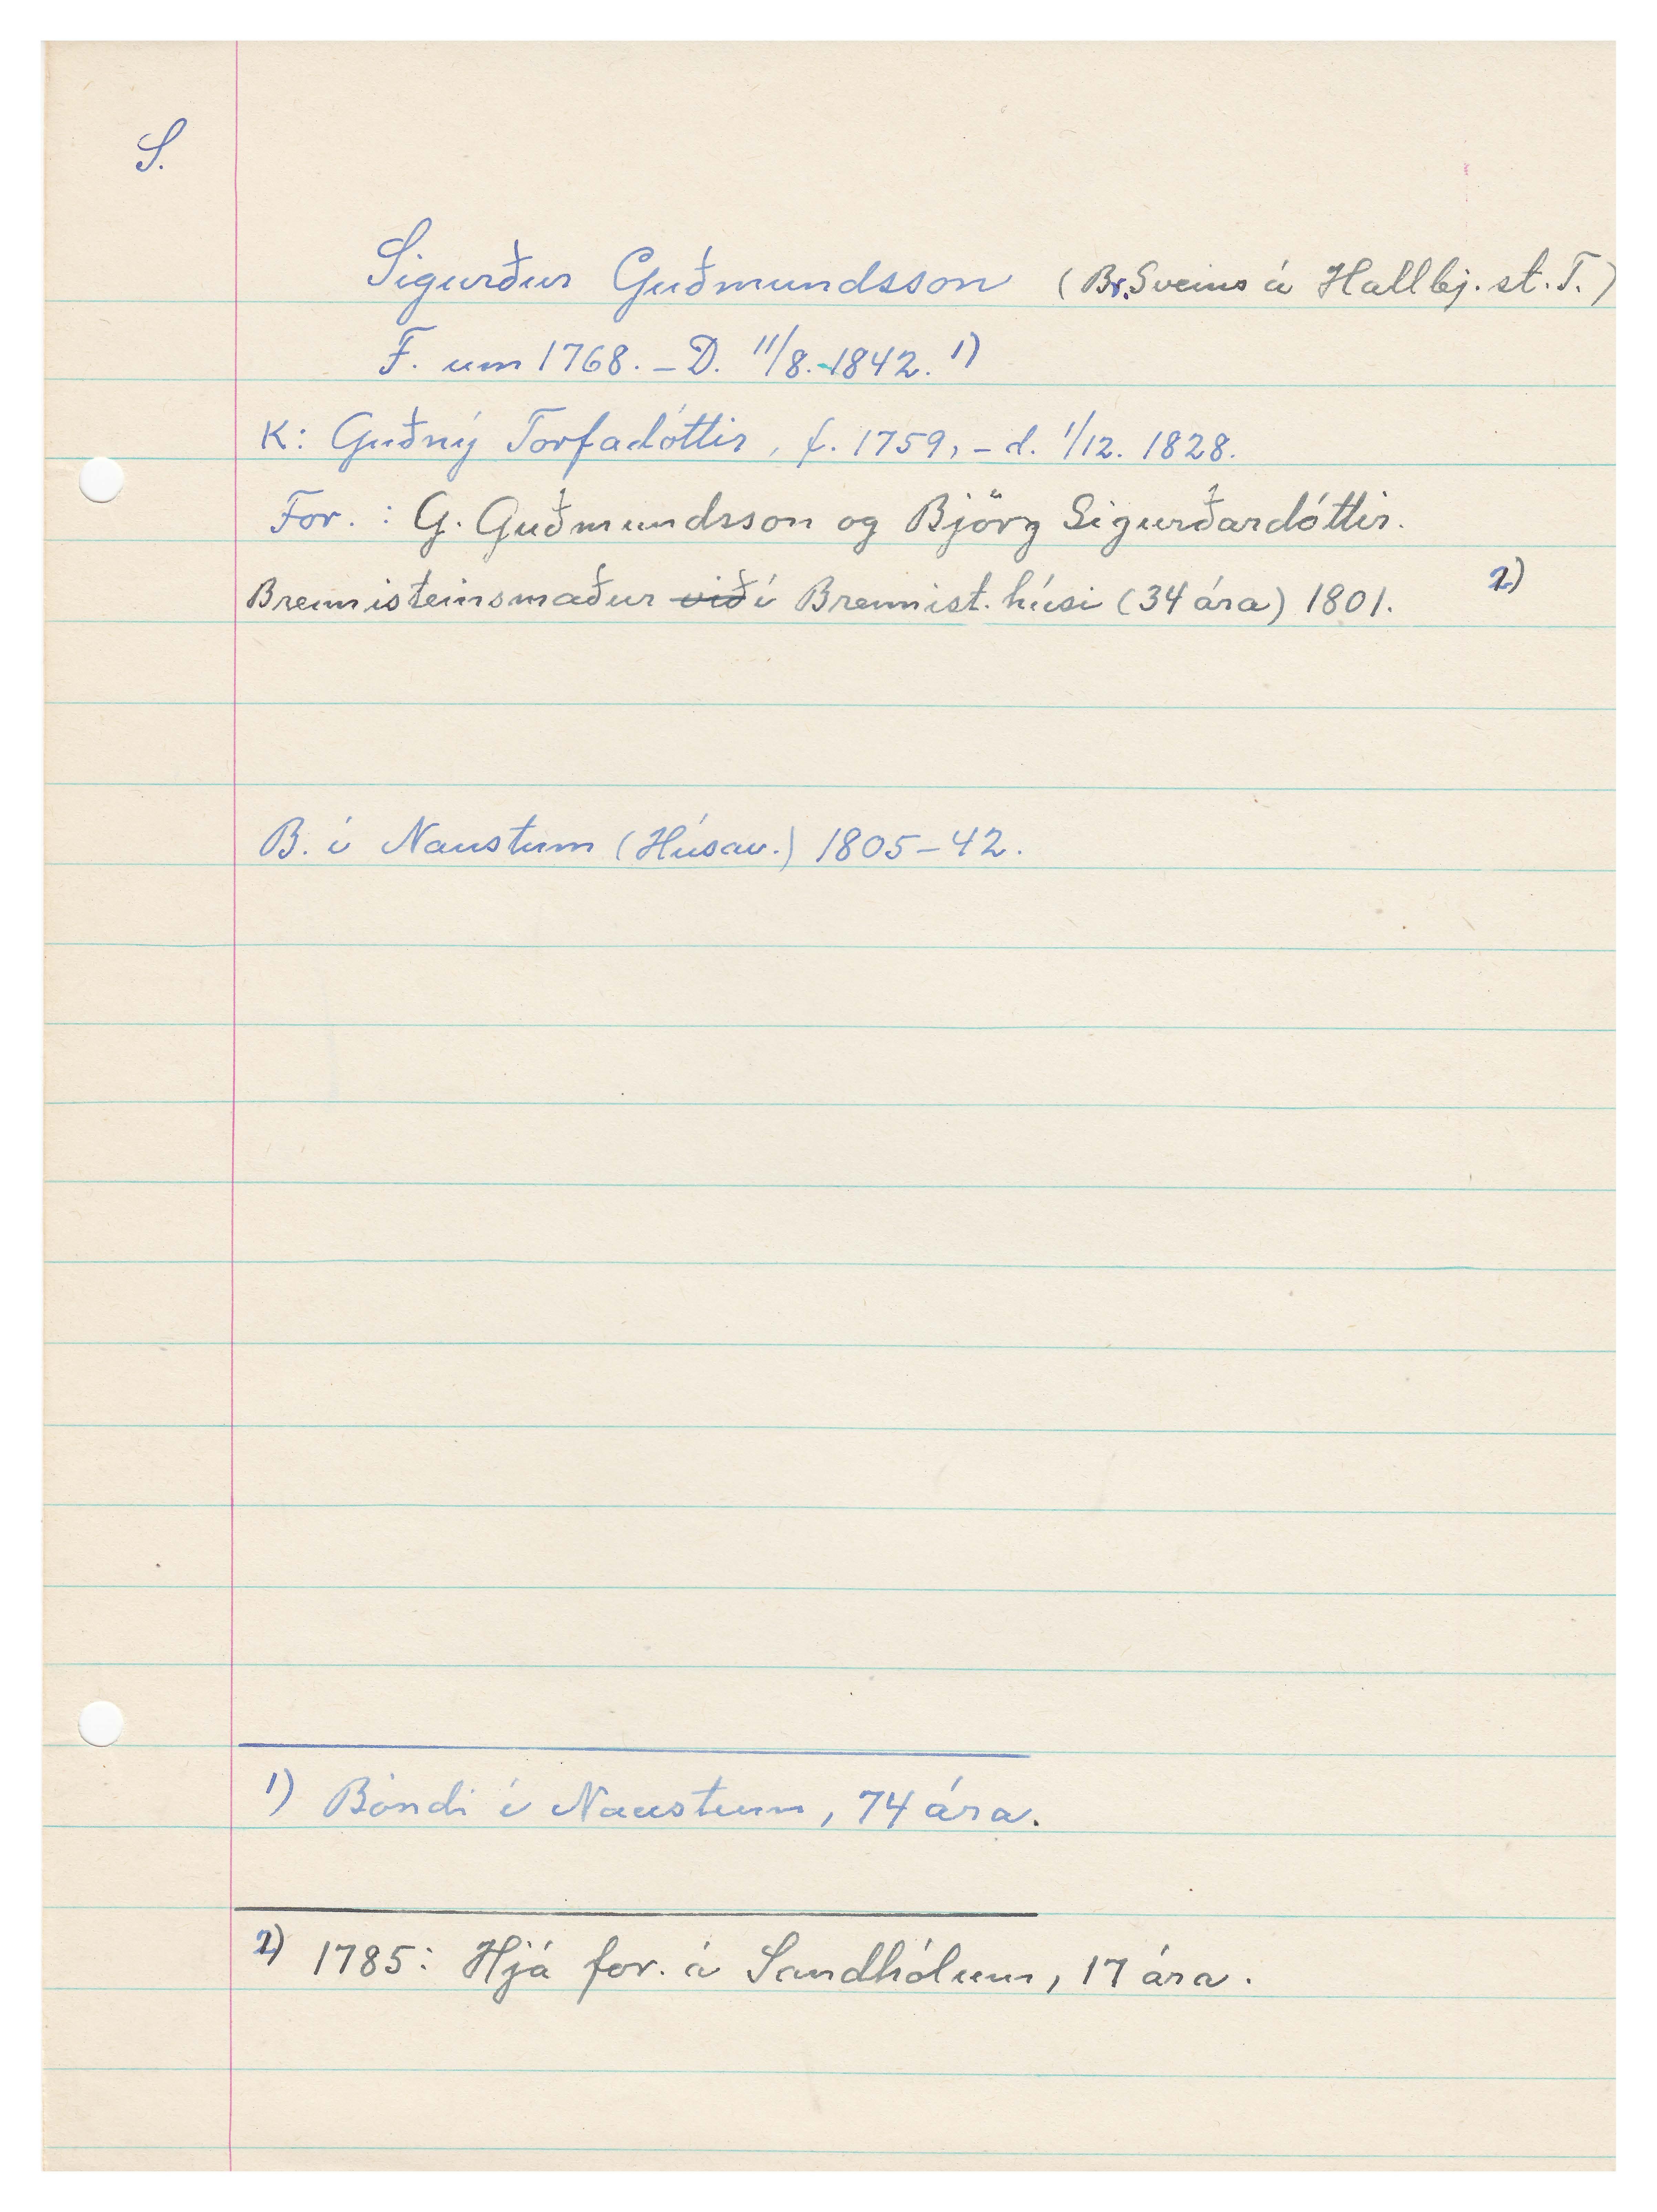 S.
Sigurður Guðmundsson (Br. Sveins á Hallbj.st. T.)
F. um 1768. – D. 11/8. 1842. 1)
K: Guðný Torfadóttir, f. 1759, – d. 1/12. 1828.
For. : G. Guðmundsson og Björg Sigurðardóttir.
Brennisteinsmaður við í Brennist.húsi (34 ára) 1801. 2)
B. í Naustum (Húsav.) 1805–42.
1) Bóndi í Naustum, 74 ára.
2) 1785: Hjá for. á Sandhólum, 17 ára.